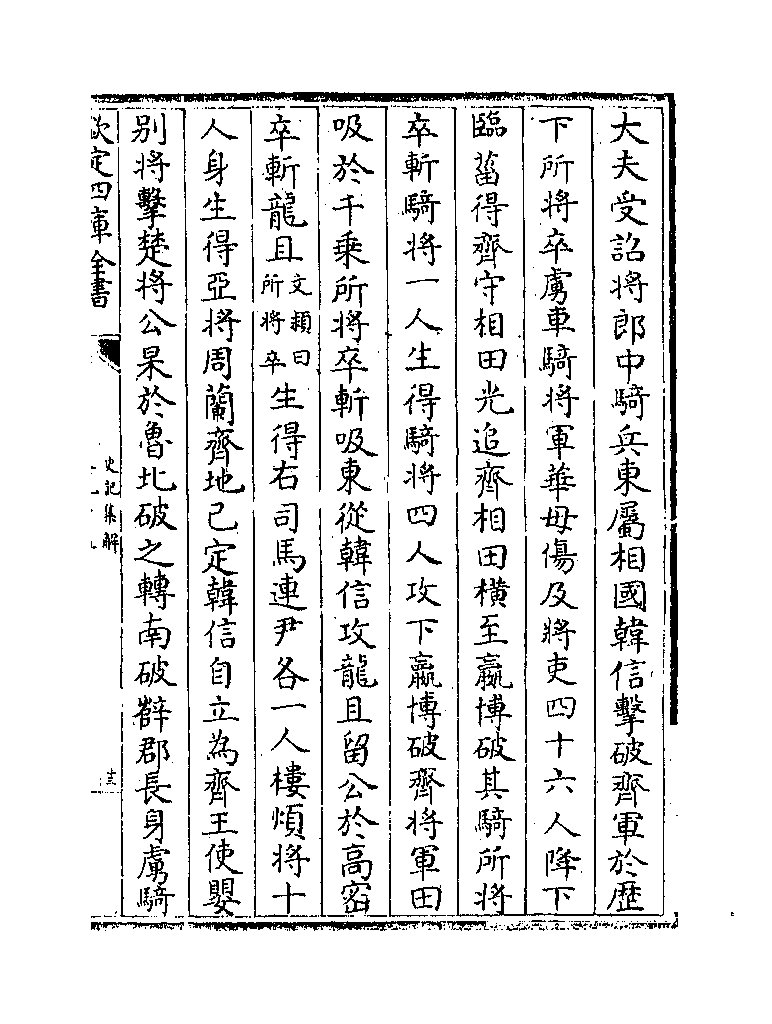 大夫受詔将郎中騎兵東屬相國韓信擊破齊軍於歴
下所将卒虜車騎将軍華毋傷及将吏四十六人降下
臨菑得齊守相田光追齊相田横至嬴博破其騎所将
卒斬騎将一人生得騎将四人攻下嬴博破齊将軍田
吸於千乗所将卒斬吸東從韓信攻龍且留公於高宻
卒斬龍且
文頴曰
所将卒
生得右司馬連尹各一人樓煩将十
人身生得亞将周蘭齊地已定韓信自立為齊王使嬰
别将擊楚将公杲於魯北破之轉南破薛郡長身虜騎
欽定四庫全書
史記集解